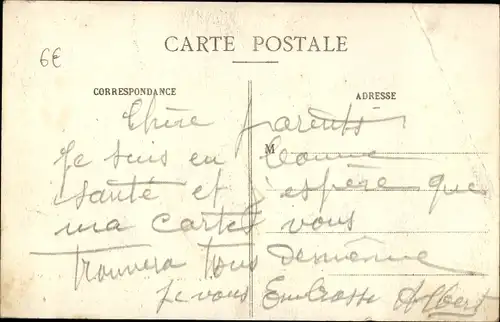 6€
CARTE POSTALE
CORRESPONDANCE
ADRESSE
M
Chère parents
Je suis en bonne
santé et espère que
ma cartes vous
trouvera tous demême
je vous Embrasse Albert